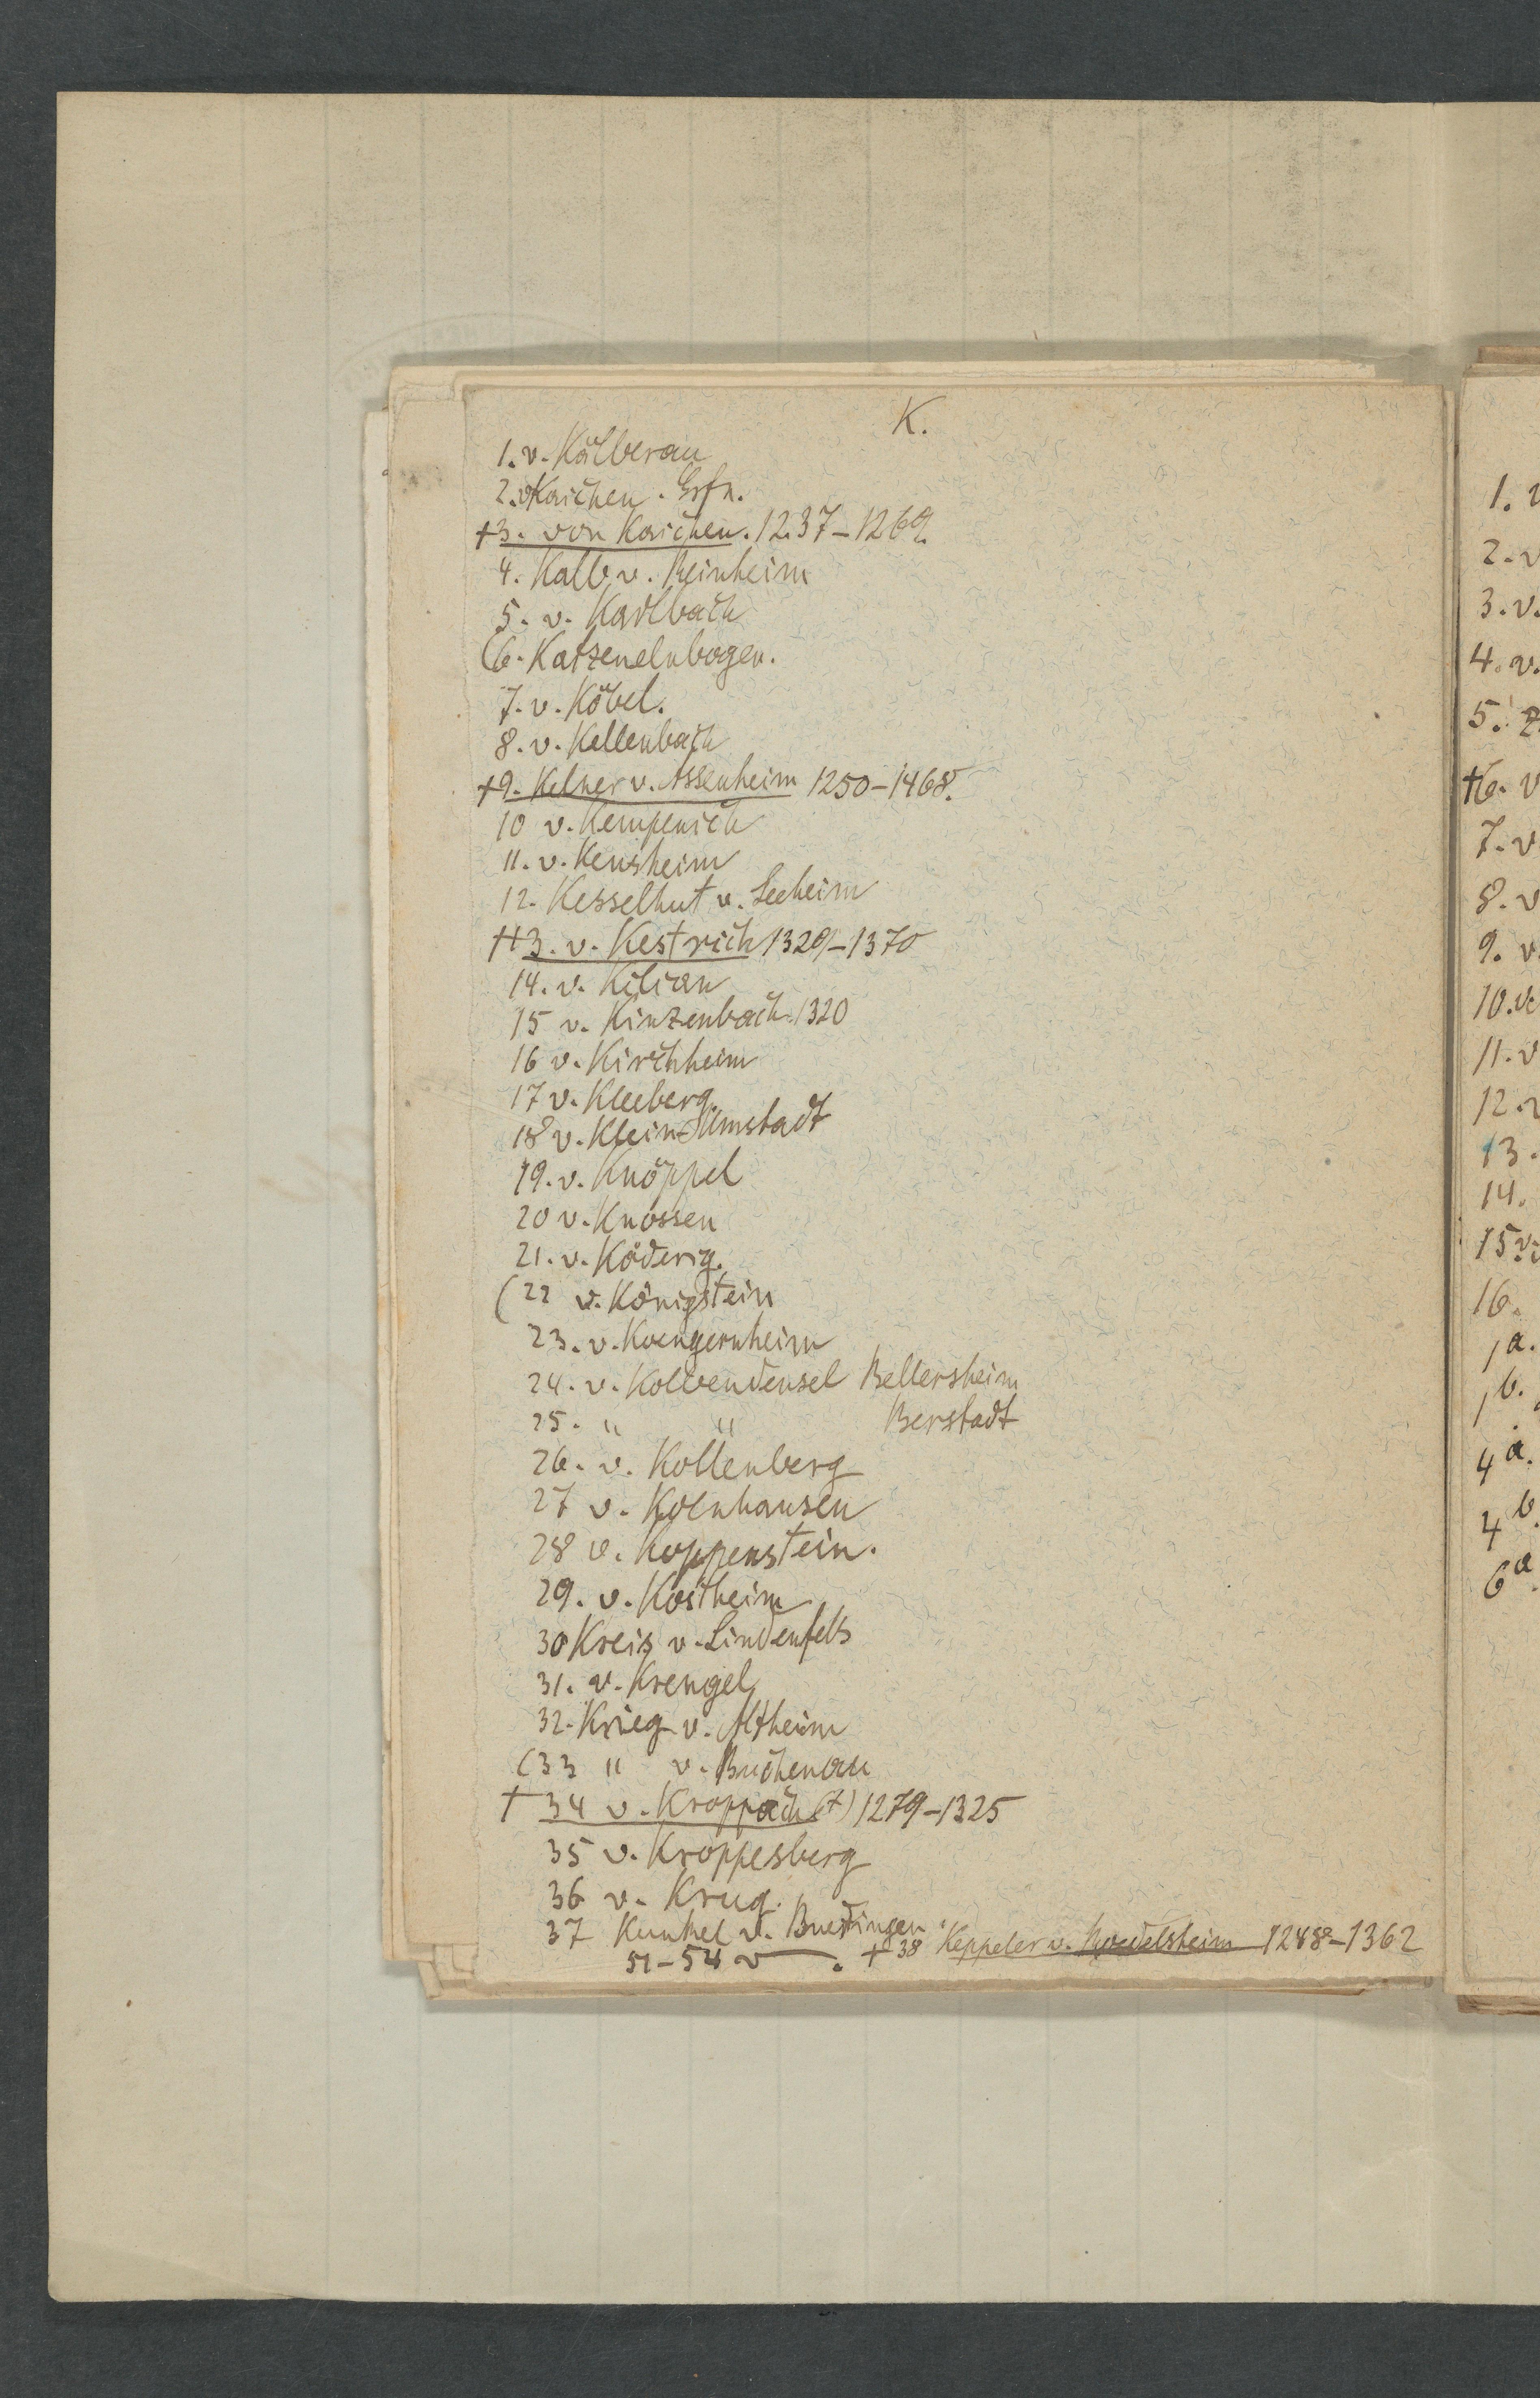 K.
1. v. Kälberau
2. v Kaichen. Grfn.
+3. von Kaichen. 1237-1269.
4. Kalb v. Reinheim
5. v. Karlbach
(6. Katzenelnbogen.
7. v. Köbel.
8. v. Kellenbach
+9. Kelner v. Assenheim 1250-1468.
10 v. Kempenich
11. v. Kensheim
12. Kesselhut v. Seeheim
+13. v. Kestrich 1329-1370
14. v. Kilian
15 v. Kinzenbach. 1320
16 v. Kirchheim
17 v. Kleeberg.
18 v. Klein-Umstadt
19. v. Knöppel
20 v. Knossen
21. v. Köderig.
(22 v. Königstein
23. v. Koengernheim
24. v. Kolbendensel Bellersheim
25. " " Berstadt
26. v. Kollenberg
27 v. Kolnhausen
28 v. Koppenstein.
29. v. Kostheim
30 Kreis v. Lindenfels
31. v. Krengel
32. Krieg v. Altheim
(33 " v. Buchenau
+ 34 v. Kroppach (+) 1279-1325
35 v. Kroppesberg
36 v. Krug.
37 Kunkel v. Buedingen.
51-54 v . + 38 Keppeler v. Roedelsheim 1288-1362
1.
2. v
3. v.
4. v.
5.
+6. v
7. v
8. v
9. v.
10. v
11. v
12.
13.
14.
15
16.
1a.
1b.
4a.
4b.
6a.